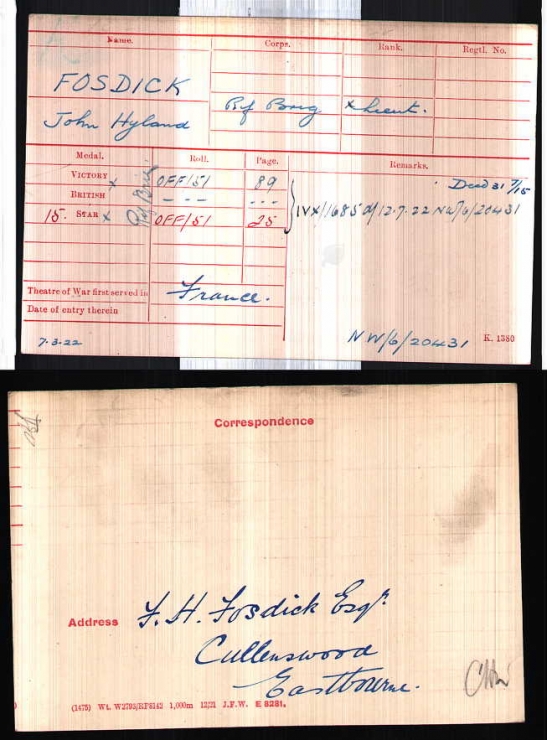 Name.
Corps.
Rank.
Regtl. No.
FOSDICK
John Hyland
Rif Brig
x Lieut.
Medal.
Roll.
Page.
Remarks.
VICTORY x
OFF/51
89
Died 31 7/15
BRITISH
- - - -
- - -
15. STAR x
OFF/51
25
IVX/1685 d/12.7.22 NW/6/20431
Theatre of War first served in
France.
Date of entry therein
7.3.22
NW/6/20431
K. 1380
Correspondence
Address
F. H. Fosdick Esqr.
Cullenswood
Eastbourne.
(1475) Wt. W2793/RP6142 1,000m 12/21 J.F.W. E 8281.